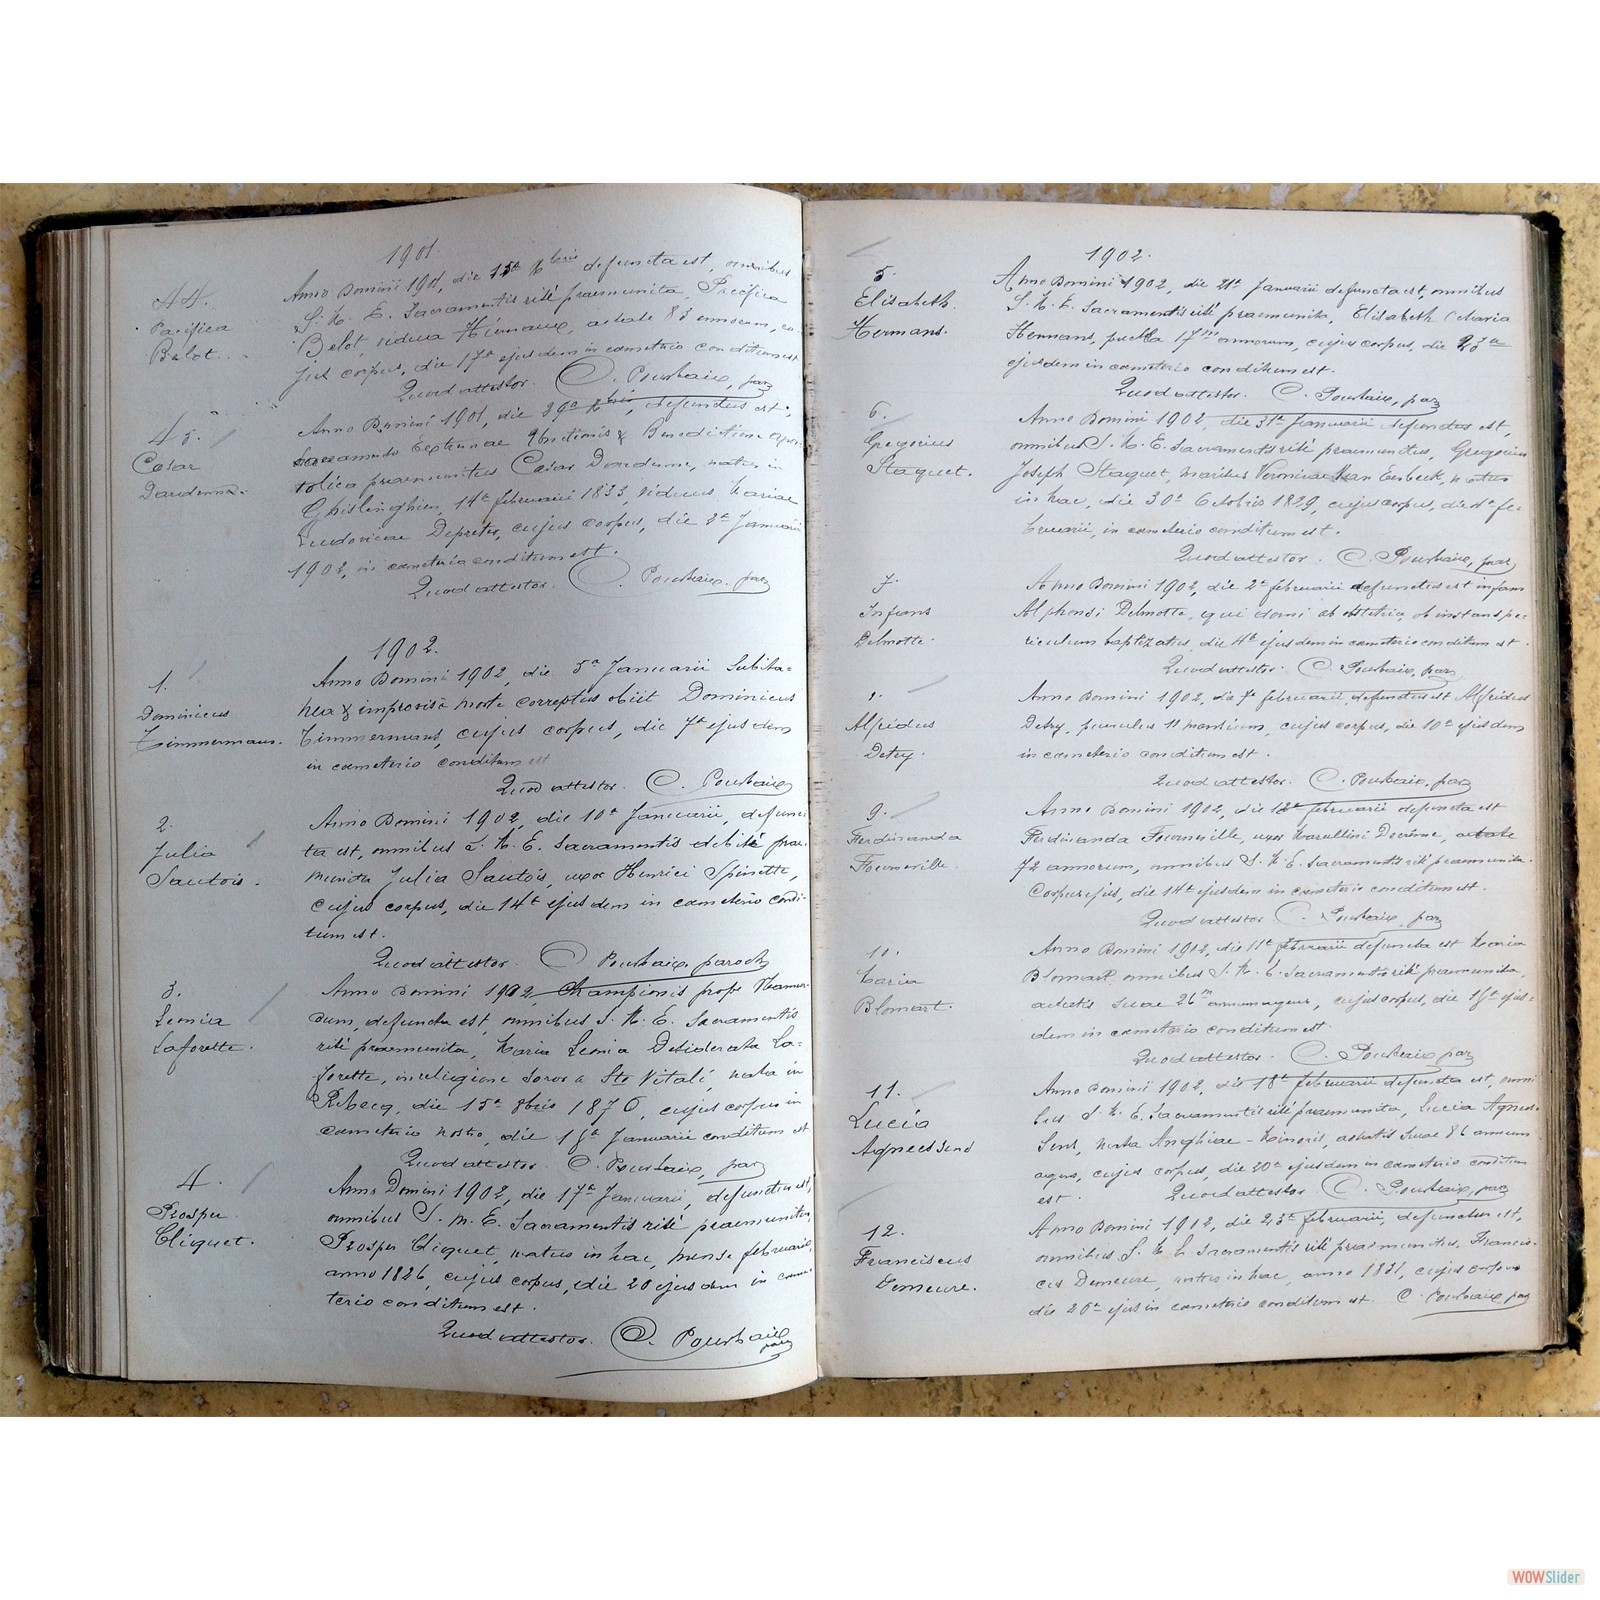 1901.
44.
Pacifica
Belot.
Anno Domini 1901, die 15a Xbris defuncta est, omnibus
S. M. E. Sacramentis rité praemunita, Pacifica
Belot, vidua Hiernaux, aetate 83 annorum, cu-
jus corpus, die 17a ejusdem in cameterio conditum est
Quod attestor. C. Pourbaix, par
45.
Cæsar
Dardenne.
Anno Domini 1901, die Xbris, defunctus est,
Sacramento Extremae Unctionis & Benedictione Apos-
tolica praemunitus Cæsar Dardenne, natus in
Ghislenghien, 14a februarii 1833, viduus Mariae
Ludovicae Depretre, cujus corpus, die 2a Januarii
1902, in cameterio conditum est.
Quod attestor. C. Pourbaix, par
1902.
1.
Dominicus
Timmermans.
Anno Domini 1902, die 5a Januarii Subita-
nea & improvisâ morte correptus obiit Dominicus
Timmermans, cujus corpus, die 7a ejusdem
in cameterio conditum est
Quod attestor. C. Pourbaix
2.
Julia
Sautois.
Anno Domini 1902, die 10a Januarii, defunc-
ta est, omnibus S. M. E. Sacramentis debité prae-
munita Julia Sautois, uxor Henrici Spinette,
cujus corpus, die 14a ejusdem in cameterio condi-
tum est.
Quod attestor. C. Pourbaix, paroch
3.
Leonia
Laforette.
Anno Domini 1902, Championis prope Namur-
cum, defuncta est, omnibus S. M. E. Sacramentis
rité praemunita, Maria Leonia Desiderata La-
forette, in religione Soror a Sto Vitali, nata in
Rebecq, die 15a 8bris 1876, cujus corpus in
cameterio nostro, die Januarii conditum est
Quod attestor. C. Pourbaix, par
4.
Prosper
Cliquet.
Anno Domini 1902, die 17a Januarii, defunctus est,
omnibus S. M. E. Sacramentis rité praemunitus,
Prosper Cliquet, natus in hac, mense februario,
anno 1826, cujus corpus, die 20 ejusdem in came-
terio conditum est.
Quod attestor. C. Pourbaix
par
1902.
5.
Elisabeth
Hermans.
Anno Domini 1902, die 21a Januarii defuncta est, omnibus
S. M. E. Sacramentis rité praemunita, Elisabeth Maria
Hermans, puella 17m annorum, cujus corpus, die 23a
ejusdem in cameterio conditum est.
Quod attestor. C. Pourbaix, par
6.
Gregorius
Staquet.
Anno Domini 1902, die 31a Januarii defunctus est,
omnibus S. M. E. Sacramentis rité praemunitus, Gregorius
Joseph Staquet, maritus Veronicae Van Eerbeek, natus
in hac, die 30a Octobris 1829, cujus corpus, die fe-
bruarii, in cameterio conditum est.
Quod attestor. C. Pourbaix, par
7.
Infans
Delmotte.
Anno Domini 1902, die 2a februarii defunctus est infans
Alphonsi Delmotte, qui domi ab obstetrice, ob instans pe-
riculum baptizatus, die 4a ejusdem in cameterio conditum est.
Quod attestor. C. Pourbaix, par
8.
Alfridus
Detry.
Anno Domini 1902, die 7a februarii defunctus est Alfridus
Detry, puerulus 11 mensium, cujus corpus, die 10a ejusdem
in cameterio conditum est.
Quod attestor. C. Pourbaix, par
9.
Ferdinanda
Fourneville.
Anno Domini 1902, die 12a februarii defuncta est
Ferdinanda Fourneville, uxor Marcellini Decrême, aetate
72 annorum, omnibus S. M. E. Sacramentis rité praemunita.
Corpus ejus, die 14a ejusdem in cameterio conditum est.
Quod attestor C. Pourbaix, par
10.
Maria
Blomart.
Anno Domini 1902, die 11a februarii defuncta est Maria
Blomart omnibus S. M. E. Sacramentis rité praemunita,
aetatis suae 26m annum agens, cujus corpus, die ejus-
dem in cameterio conditum est.
Quod attestor. C. Pourbaix par
11.
Lucia
Agneessens
Anno Domini 1902, die 18a februarii defuncta est, omni-
bus S. M. E. Sacramentis rité praemunita, Lucia Agnees-
sens, nata Anghiae-Minoris, aetatis suae 86 annum
agens, cujus corpus, die 20a ejusdem in cameterio conditum
est. Quod attestor C. Pourbaix, par
12.
Franciscus
Demeure.
Anno Domini 1902, die 23a februarii, defunctus est,
omnibus S. M. E. Sacramentis rité praemunitus, Francis-
cus Demeure, natus in hac, anno 1831, cujus corpus
die 26a ejus in cameterio conditum est. C. Pourbaix par
WOWSlider